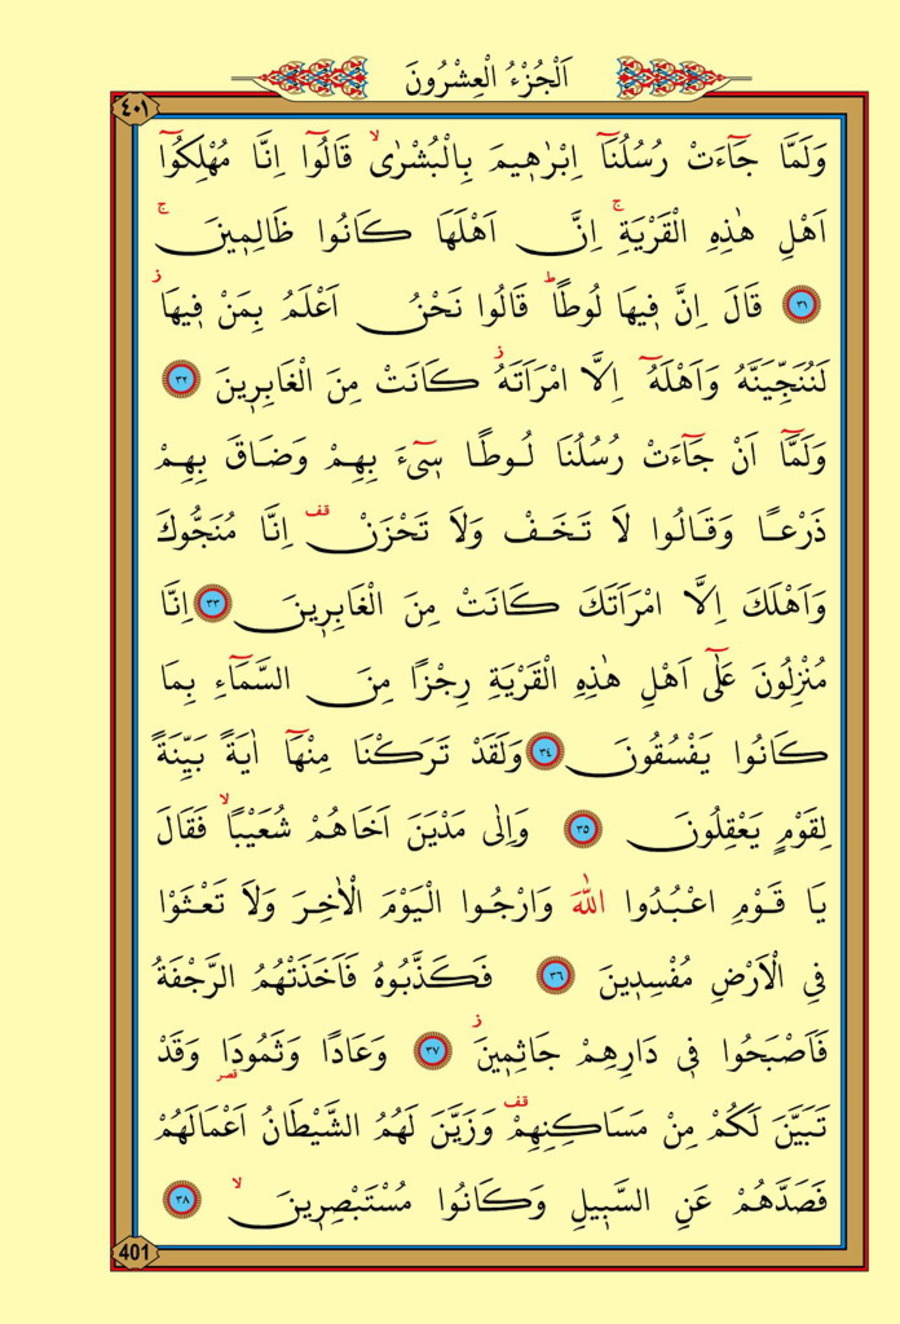 اَلْجُزْءُ الْعِشْرُونَ
٤٠١
وَلَمَّا جَٓاءَتْ رُسُلُنَٓا اِبْرٰه۪يمَ بِالْبُشْرٰىۙ قَالُٓوا اِنَّا مُهْلِكُٓوا
اَهْلِ هٰذِهِ الْقَرْيَةِۚ اِنَّ اَهْلَهَا كَانُوا ظَالِم۪ينَۚ
﴿٣١﴾ قَالَ اِنَّ ف۪يهَا لُوطًاۜ قَالُوا نَحْنُ اَعْلَمُ بِمَنْ ف۪يهَاۘ
لَنُنَجِّيَنَّهُ وَاَهْلَهُٓ اِلَّا امْرَاَتَهُۘ كَانَتْ مِنَ الْغَابِر۪ينَ ﴿٣٢﴾
وَلَمَّٓا اَنْ جَٓاءَتْ رُسُلُنَا لُوطًا س۪ٓيءَ بِهِمْ وَضَاقَ بِهِمْ
ذَرْعًا وَقَالُوا لَا تَخَفْ وَلَا تَحْزَنْ۠ قف اِنَّا مُنَجُّوكَ
وَاَهْلَكَ اِلَّا امْرَاَتَكَ كَانَتْ مِنَ الْغَابِر۪ينَ ﴿٣٣﴾ اِنَّا
مُنْزِلُونَ عَلٰٓى اَهْلِ هٰذِهِ الْقَرْيَةِ رِجْزًا مِنَ السَّمَٓاءِ بِمَا
كَانُوا يَفْسُقُونَ ﴿٣٤﴾ وَلَقَدْ تَرَكْنَا مِنْهَٓا اٰيَةً بَيِّنَةً
لِقَوْمٍ يَعْقِلُونَ ﴿٣٥﴾ وَاِلٰى مَدْيَنَ اَخَاهُمْ شُعَيْبًاۙ فَقَالَ
يَا قَوْمِ اعْبُدُوا اللّٰهَ وَارْجُوا الْيَوْمَ الْاٰخِرَ وَلَا تَعْثَوْا
فِي الْاَرْضِ مُفْسِد۪ينَ ﴿٣٦﴾ فَكَذَّبُوهُ فَاَخَذَتْهُمُ الرَّجْفَةُ
فَاَصْبَحُوا ف۪ي دَارِهِمْ جَاثِم۪ينَۘ ﴿٣٧﴾ وَعَادًا وَثَمُودَا قصر وَقَدْ
تَبَيَّنَ لَكُمْ مِنْ مَسَاكِنِهِمْ قف وَزَيَّنَ لَهُمُ الشَّيْطَانُ اَعْمَالَهُمْ
فَصَدَّهُمْ عَنِ السَّب۪يلِ وَكَانُوا مُسْتَبْصِر۪ينَۙ ﴿٣٨﴾
401